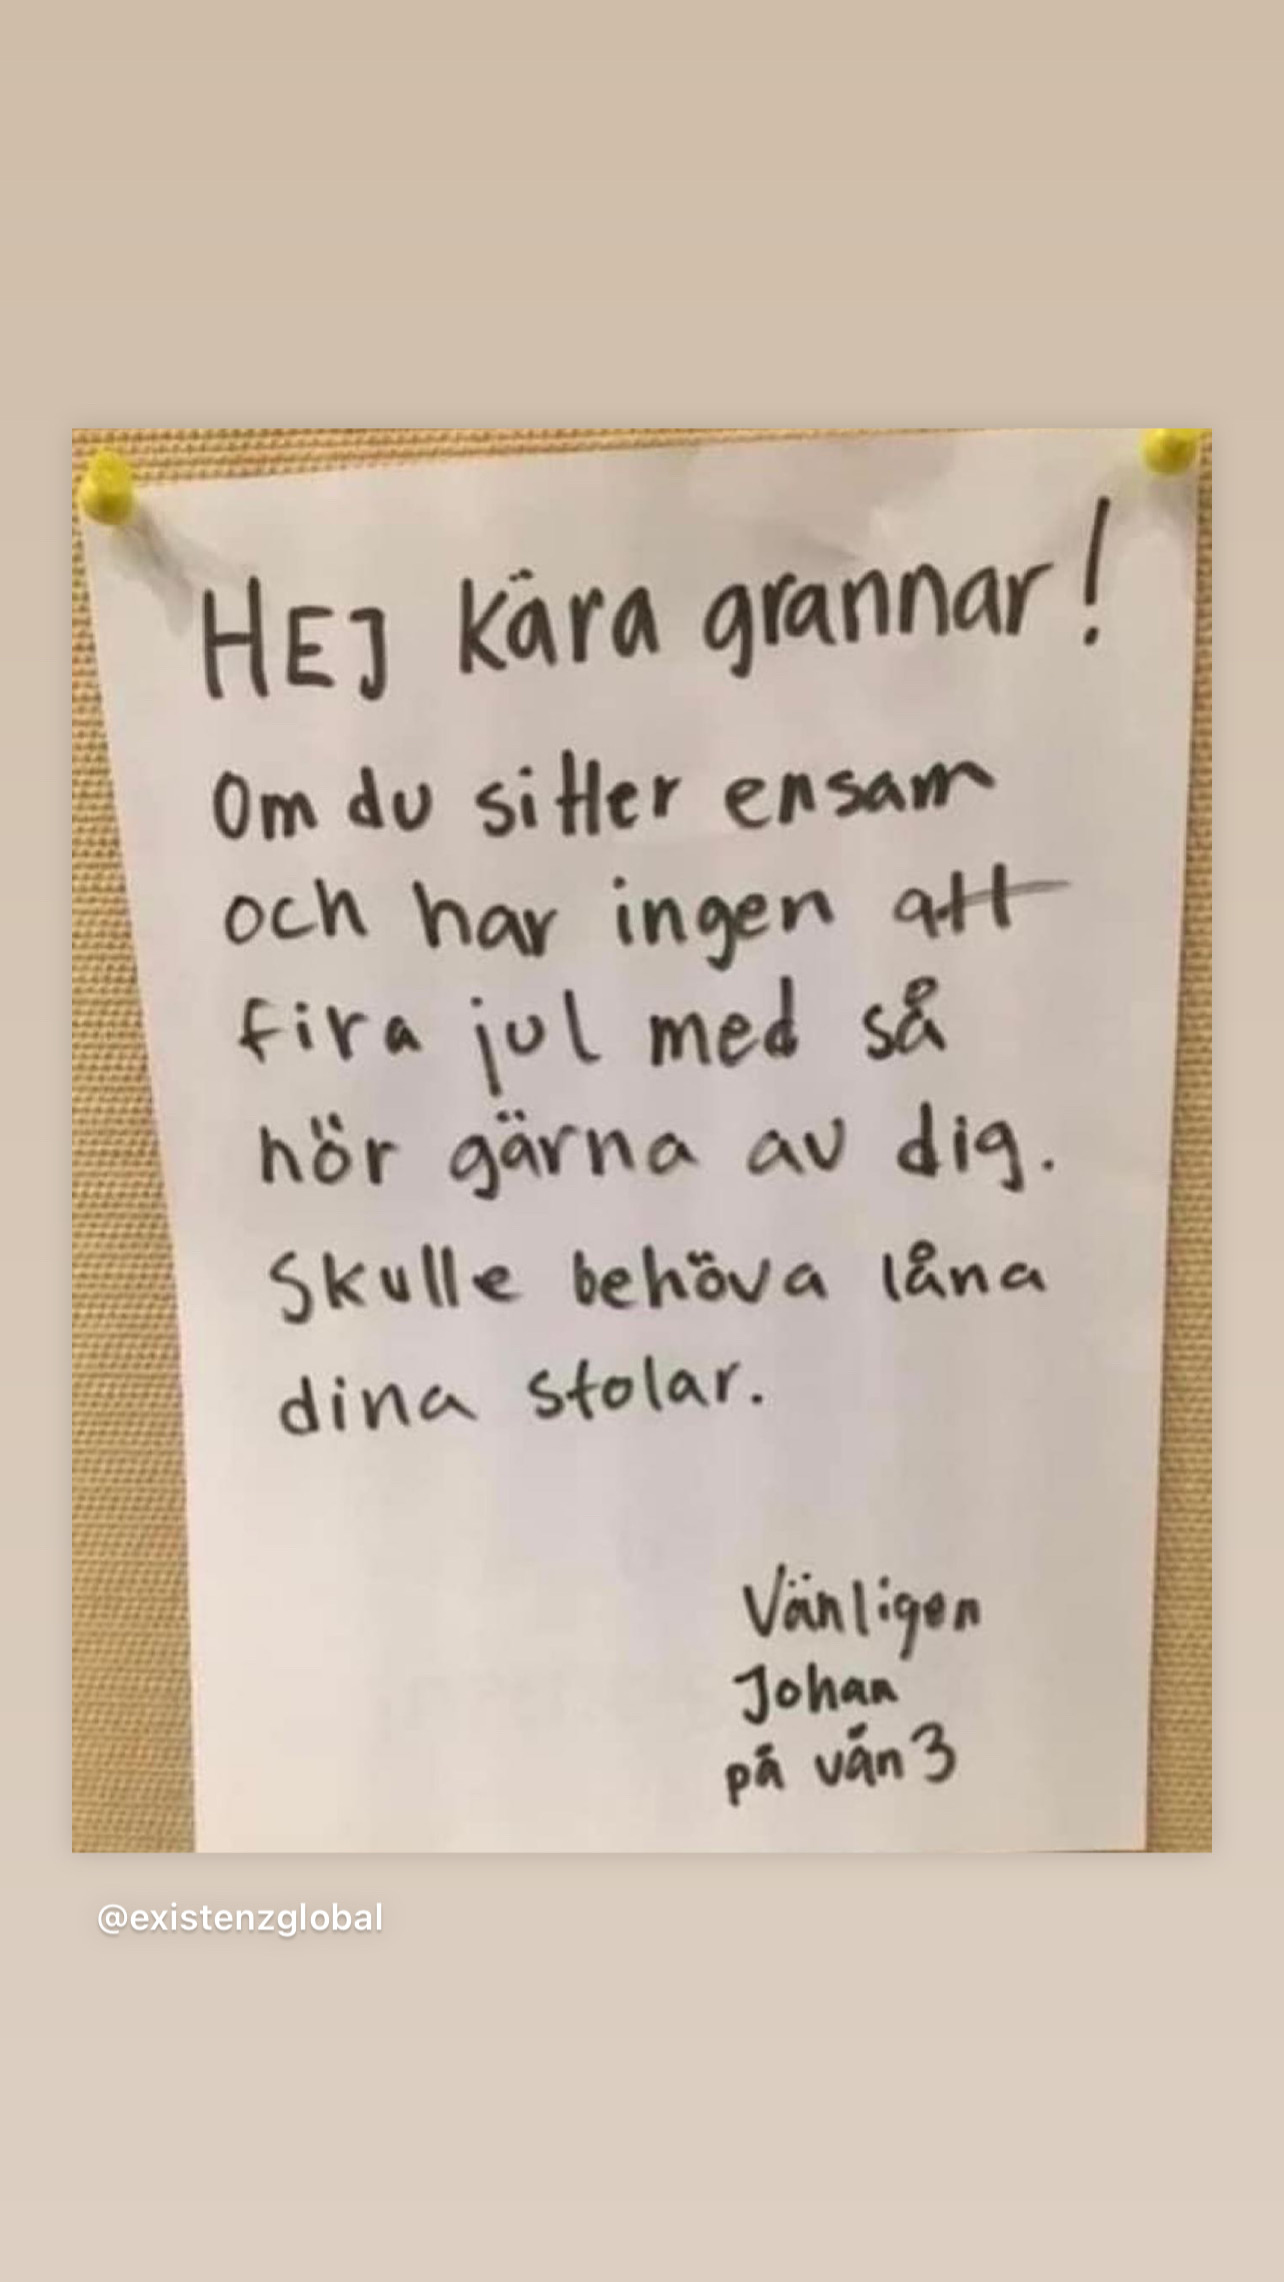 HEJ kära grannar!
Om du sitter ensam
och har ingen att
fira jul med så
hör gärna av dig.
Skulle behöva låna
dina stolar.
Vänligen
Johan
på vån 3
@existenzglobal